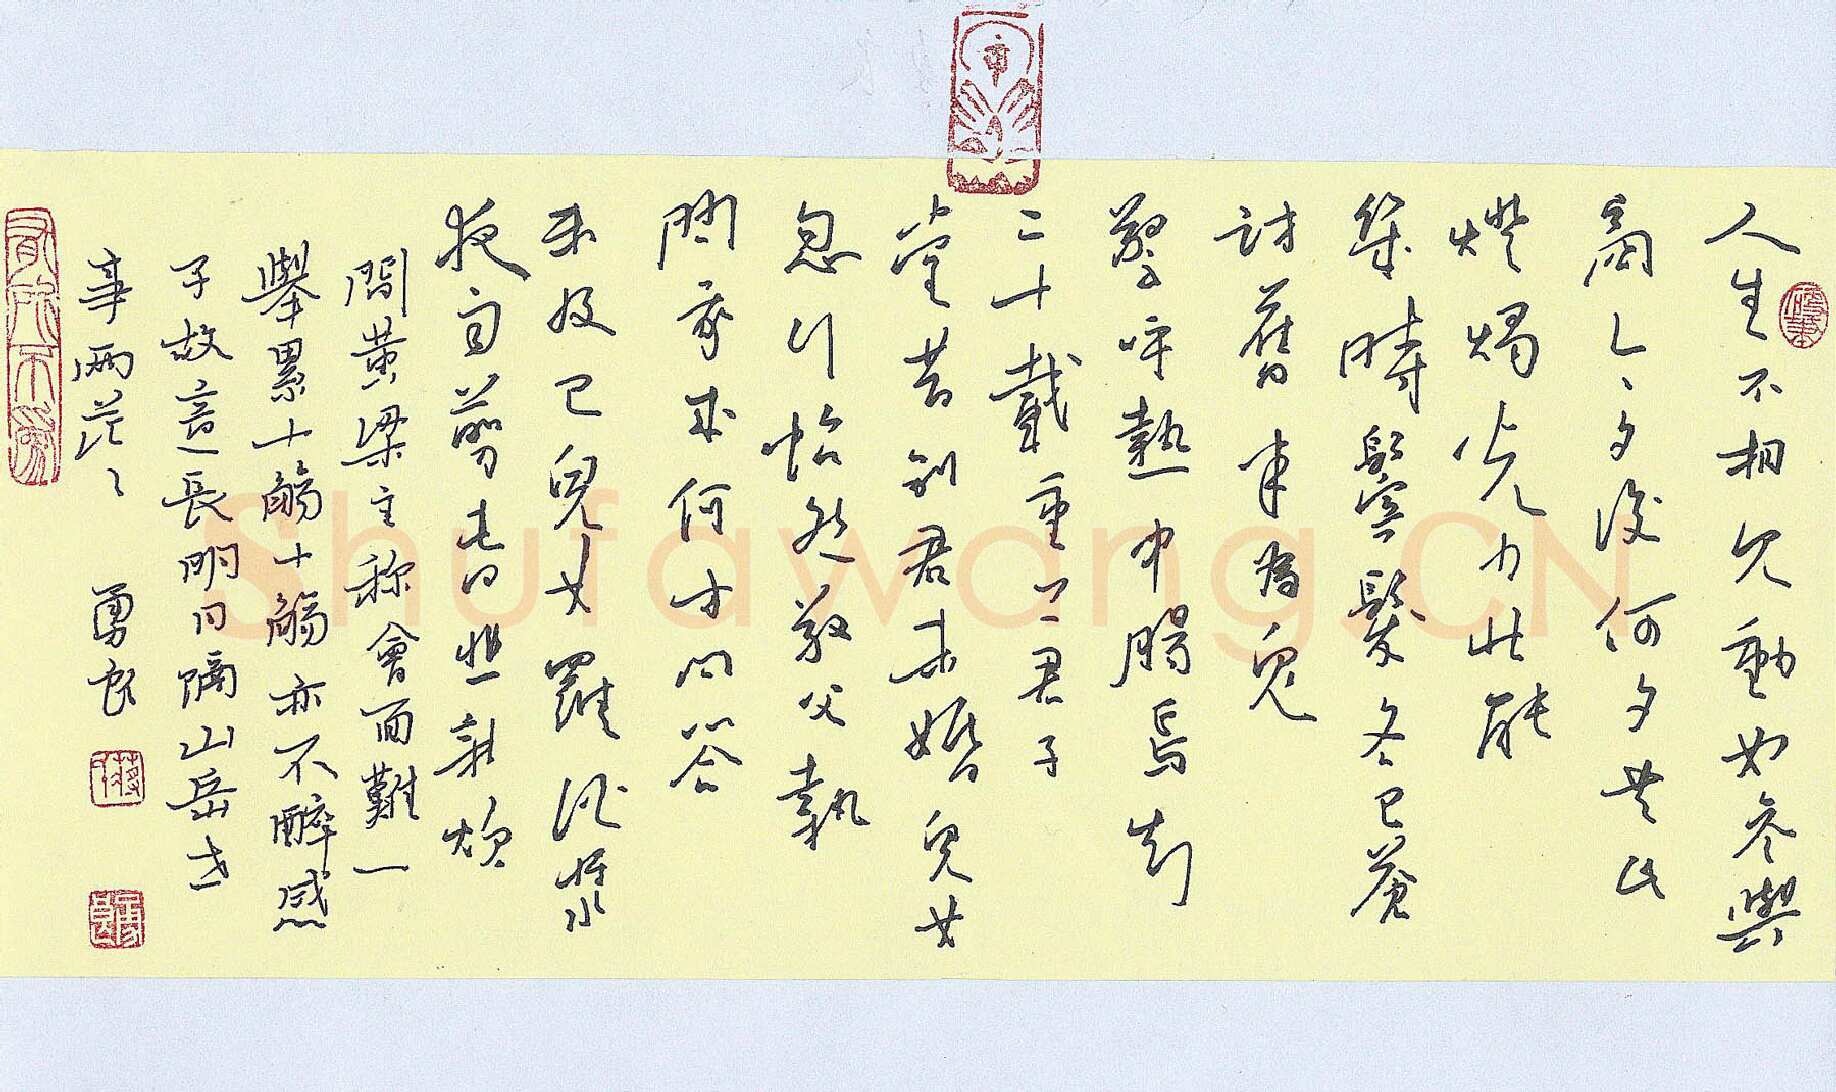 人生不相見動如參與
商今夕復何夕共此
燈燭光少壯能
幾時鬢髮各已蒼
訪舊半為鬼
驚呼熱中腸焉知
二十載重上君子
堂昔別君未婚兒女
忽行怡然敬父執
問我來何方問答
未及已兒女羅酒漿
夜雨剪春韭新炊
間黃梁主稱會面難一
舉累十觴十觴亦不醉感
子故意長明日隔山岳世
事兩茫〻 勇良
Shufawang.CN